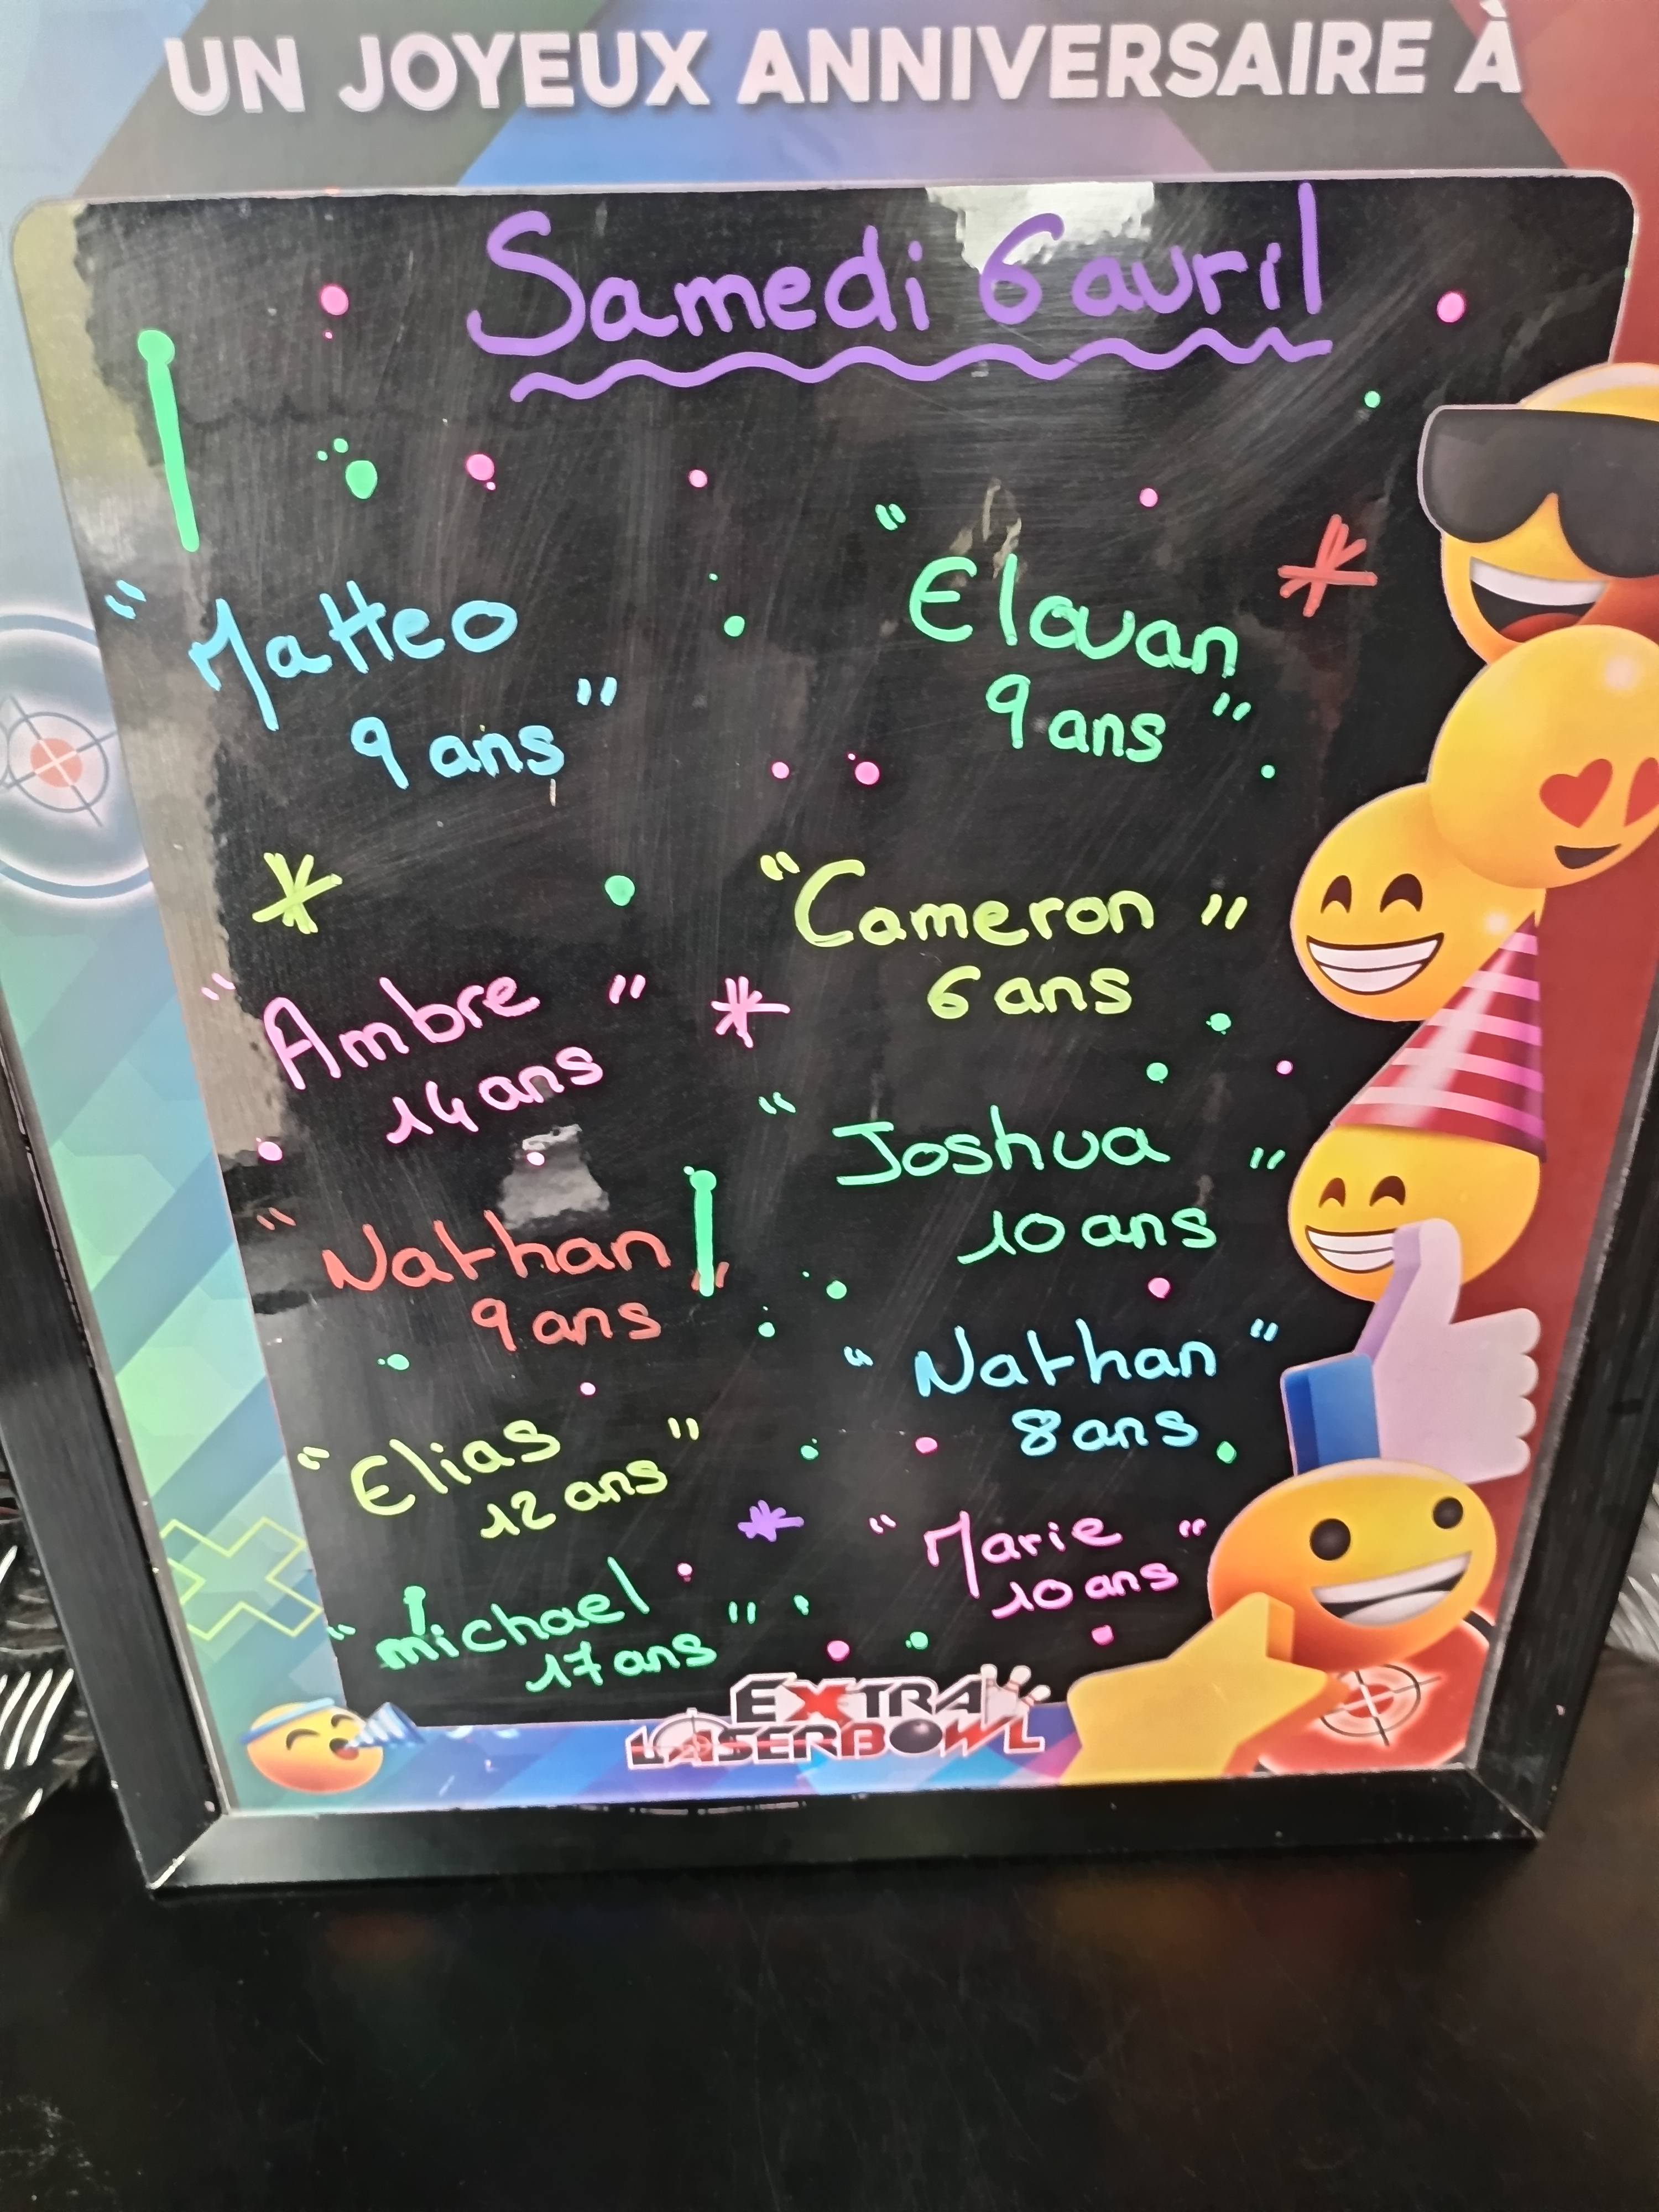 UN JOYEUX ANNIVERSAIRE À
Samedi 6 avril
"Matteo
9 ans"
"Elouan
9 ans"
"Cameron"
6 ans
"Ambre"
14 ans
"Joshua"
10 ans
"Nathan"
9 ans
"Nathan"
8 ans
"Elias"
12 ans
"Marie"
10 ans
"michael"
17 ans
EXTRA
LASERBOWL